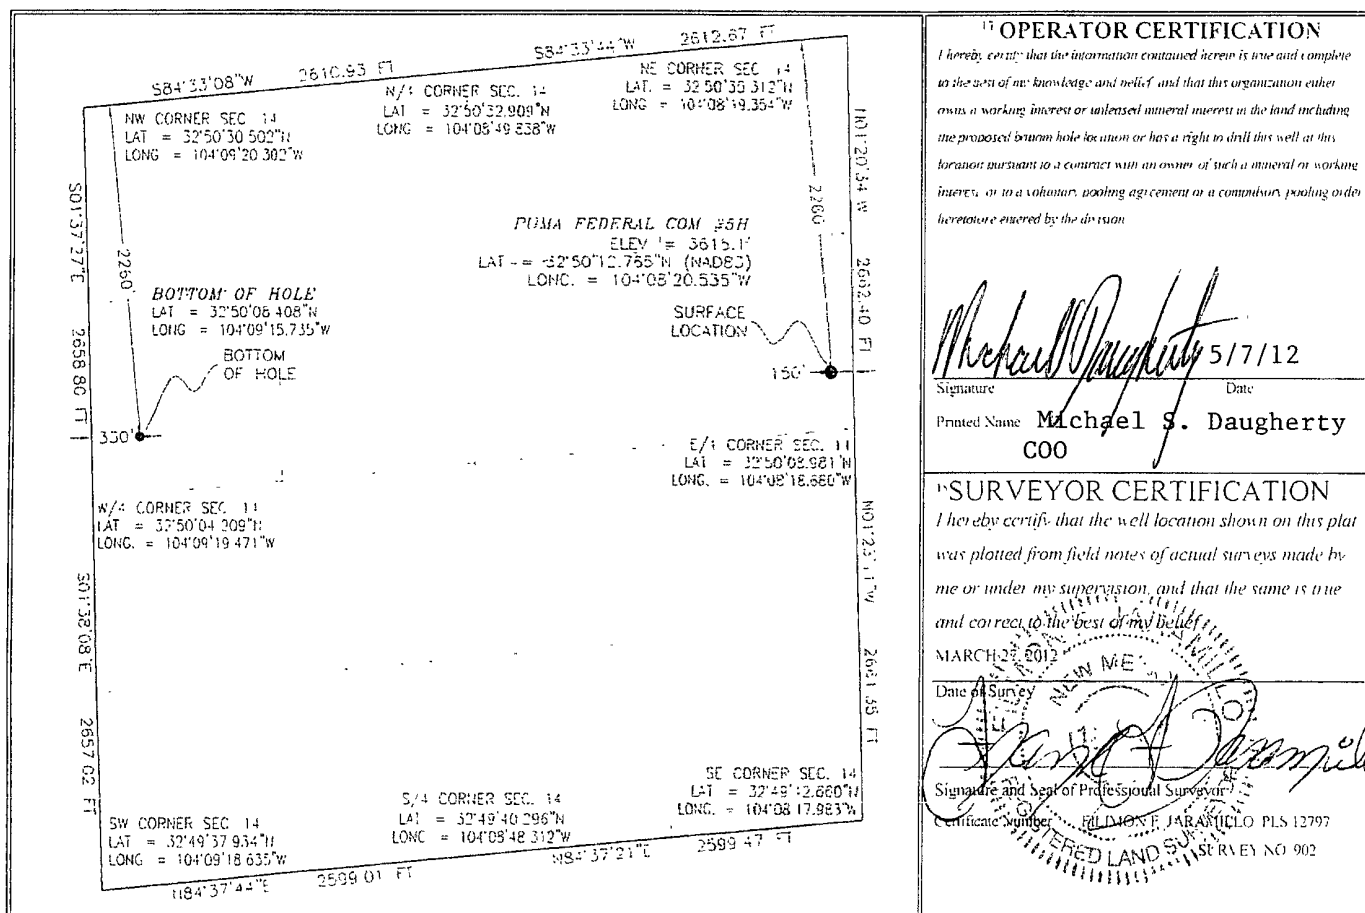 S84°33'08"W 2610.93 FT
S84°33'44"W 2612.67 FT
NW CORNER SEC 14
LAT = 32°50'30.502"N
LONG = 104°09'20.302"W
N/4 CORNER SEC. 14
LAT = 32°50'32.909"N
LONG = 104°08'49.838"W
NE CORNER SEC 14
LAT. = 32°50'35.312"N
LONG = 104°08'19.354"W
S01°37'27"E 2658.80 FT
2260'
N01°20'34"W 2662.40 FT
2260'
PUMA FEDERAL COM #5H
ELEV = 3615.1'
LAT = 32°50'12.765"N (NAD83)
LONG. = 104°08'20.535"W
BOTTOM OF HOLE
LAT = 32°50'08.408"N
LONG = 104°09'15.735"W
SURFACE
LOCATION
BOTTOM
OF HOLE
150'
330'
E/4 CORNER SEC. 14
LAT = 32°50'08.981"N
LONG. = 104°08'18.680"W
W/4 CORNER SEC. 14
LAT = 32°50'04.209"N
LONG. = 104°09'19.471"W
S01°38'08"E 2657.02 FT
2661.55 FT
SE CORNER SEC. 14
LAT = 32°49'42.660"N
LONG. = 104°08'17.983"W
S/4 CORNER SEC. 14
LAT = 32°49'40.296"N
LONG = 104°08'48.312"W
SW CORNER SEC 14
LAT = 32°49'37.934"N
LONG = 104°09'18.635"W
N84°37'44"E 2599.01 FT
N84°37'21"E 2599.47 FT
17 OPERATOR CERTIFICATION
I hereby certify that the information contained herein is true and complete
to the best of my knowledge and belief and that this organization either
owns a working interest or unleased mineral interest in the land including
the proposed bottom hole location or has a right to drill this well at this
location pursuant to a contract with an owner of such a mineral or working
interest, or to a voluntary pooling agreement or a compulsory pooling order
heretofore entered by the division
Michael Daugherty 5/7/12
Signature Date
Printed Name Michael S. Daugherty
COO
SURVEYOR CERTIFICATION
I hereby certify that the well location shown on this plat
was plotted from field notes of actual surveys made by
me or under my supervision, and that the same is true
and correct to the best of my belief
MARCH 27, 2012
Date of Survey
Signature and Seal of Professional Surveyor
Certificate Number FILIMON F. JARAMILLO PLS 12797
SURVEY NO 902
FILIMON F. JARAMILLO
NEW MEXICO
REGISTERED LAND SURVEYOR